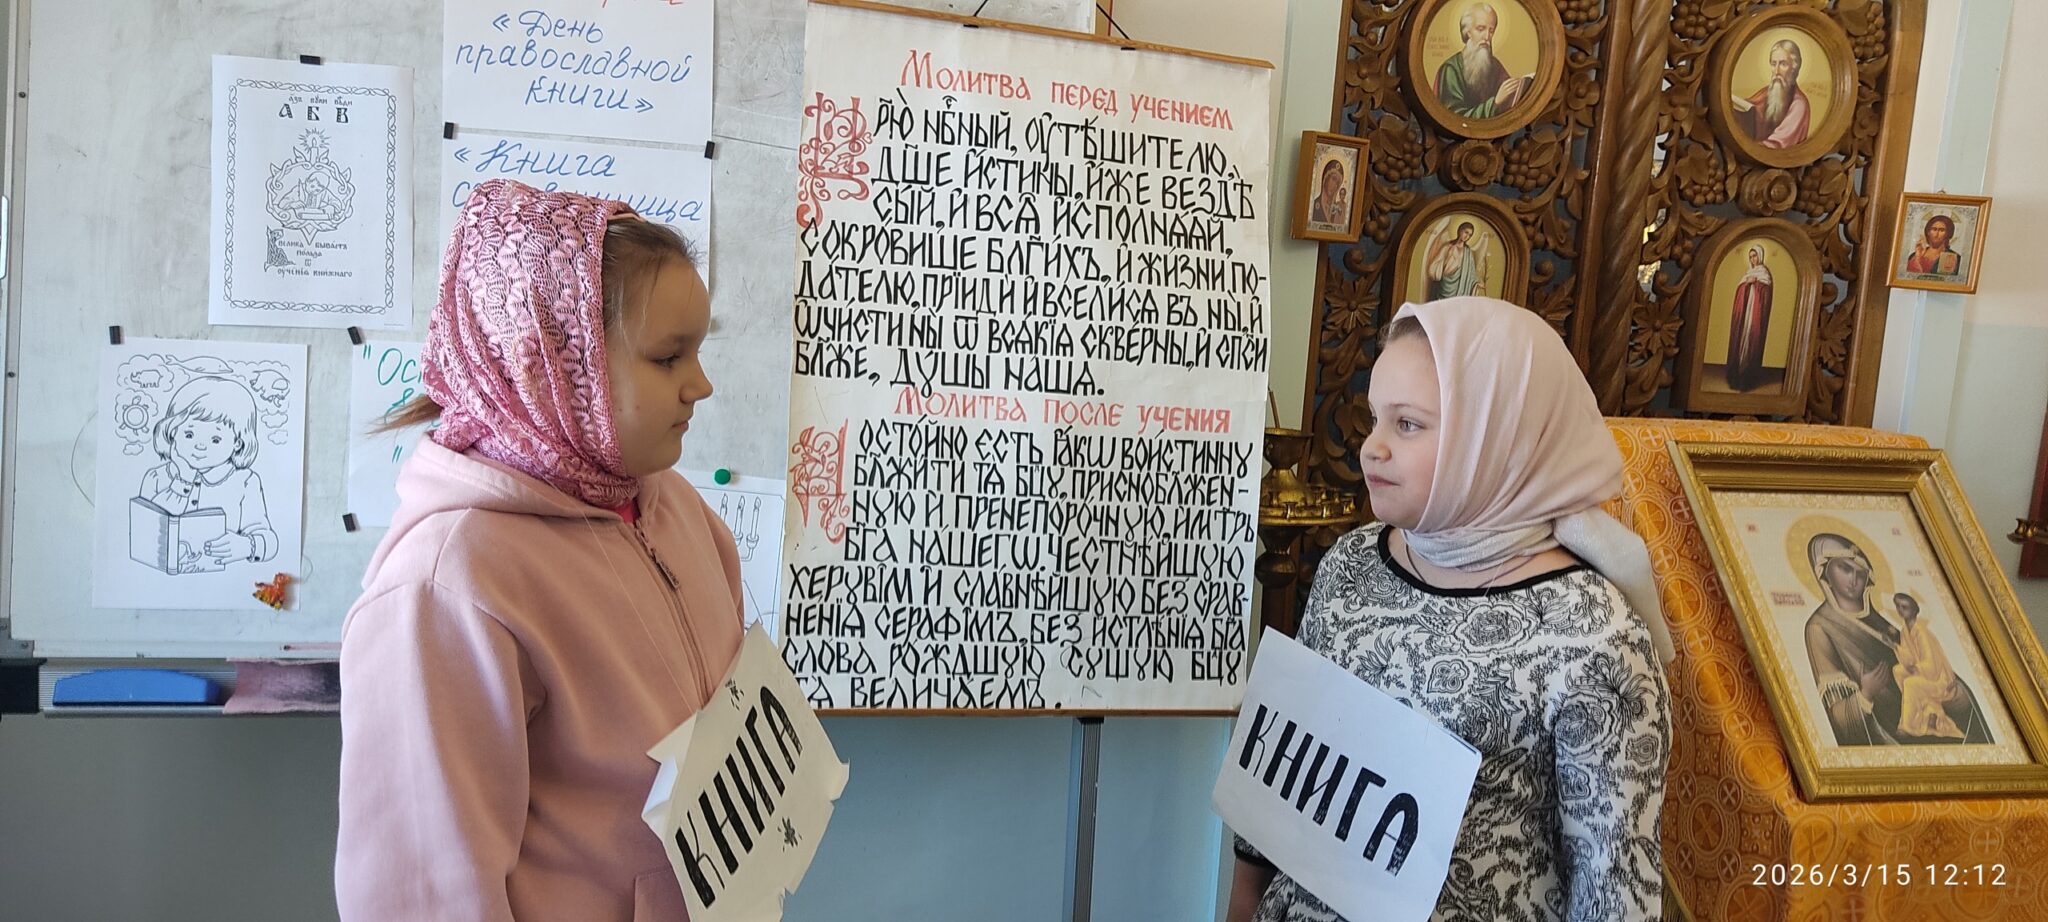 «День
православной
книги»
«Книга
АЗЪ БУКИ ВѢДИ
А Б В
ВЕЛИКА БЫВАЕТЪ
ПОЛЬЗА
Ѿ
ОУЧЕНІѦ КНИЖНАГО
Молитва перед учением
Црю̀ нбⷭ҇ный, ᲂу҆тѣ́шителю,
дш҃е и҆́стины, и҆́же вездѣ̀
сы́й, и҆ всѧ̑ и҆сполнѧ́ѧй,
сокро́вище благи́хъ, и҆ жи́зни по-
да́телю, прїидѝ и҆ всели́сѧ въ ны̀, и҆
ѡ҆чи́сти ны̀ ѿ всѧ́кїѧ скве́рны, и҆ сп҃сѝ
бл҃же, дꙋ́шы на́шѧ.
Молитва после учения
Досто́йно є҆́сть ꙗ҆́кѡ вои́стиннꙋ
бл҃жи́ти тѧ̀ бц҃ꙋ, присноблаже́н-
нꙋю и҆ пренепоро́чнꙋю, и҆ мт҃рь
бг҃а на́шегѡ. Честнѣ́йшꙋю
херꙋві̑мъ и҆ сла́внѣйшꙋю без̾ срав-
не́нїѧ серафі̑мъ, без̾ и҆стлѣ́нїѧ бг҃а
сло́ва ро́ждшꙋю сꙋ́щꙋю бц҃ꙋ
тѧ̀ велича́емъ.
КНИГА
КНИГА
2026/3/15 12:12